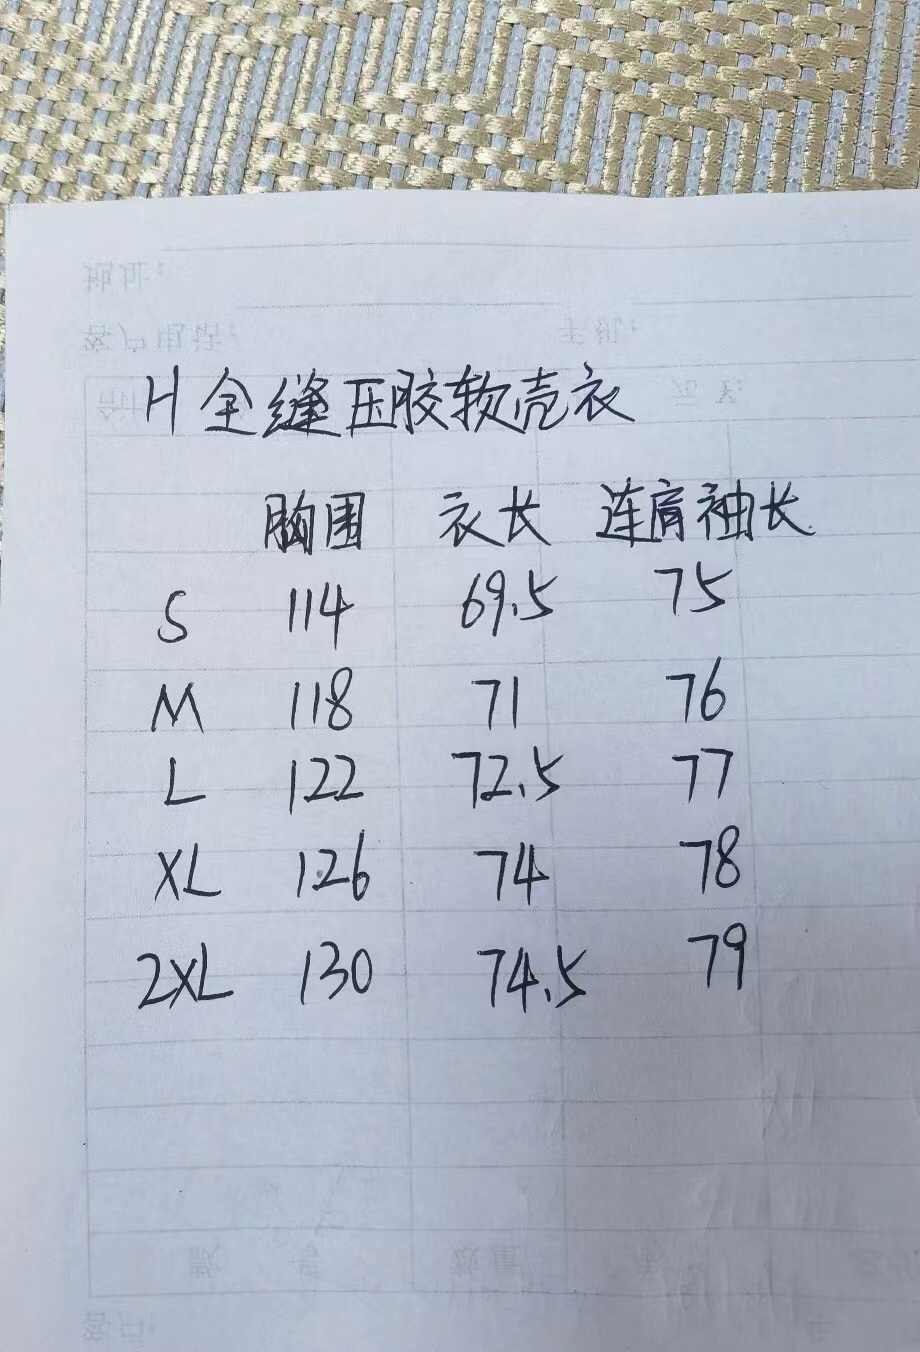 H全缝压胶软壳衣
胸围 衣长 连肩袖长
S 114 69.5 75
M 118 71 76
L 122 72.5 77
XL 126 74 78
2XL 130 74.5 79